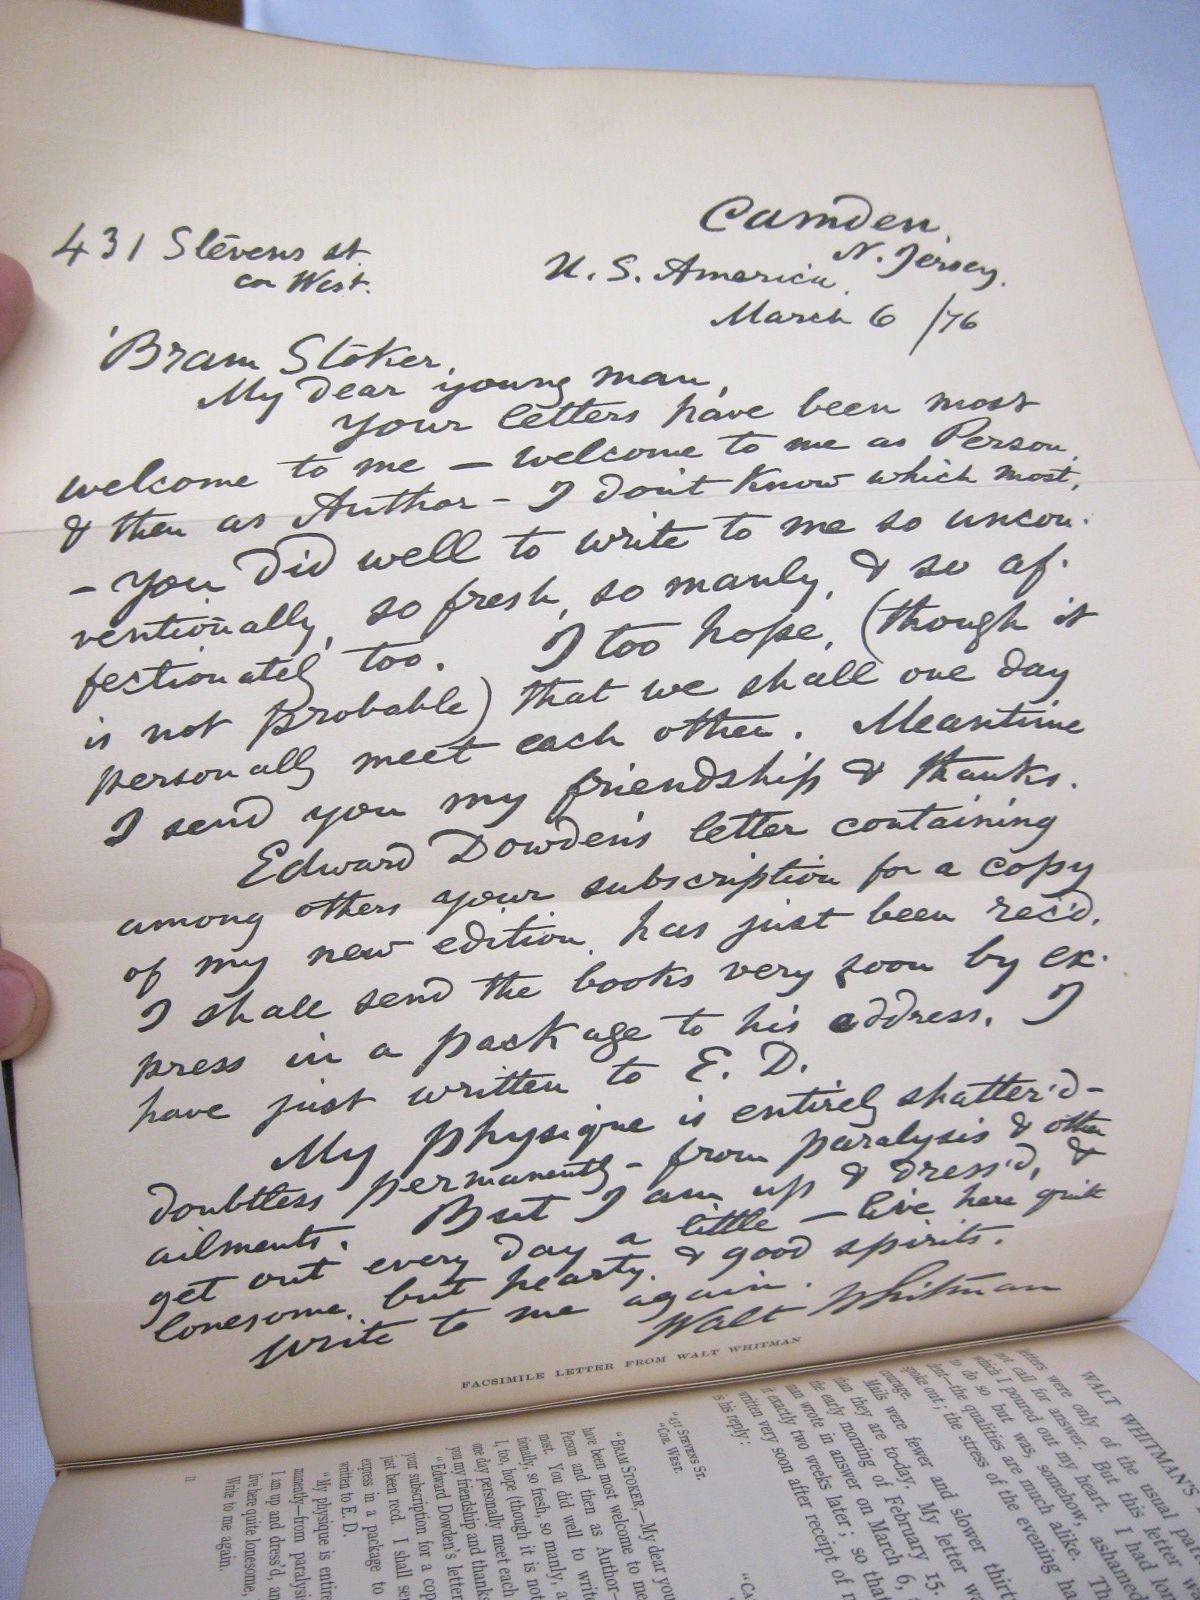 431 Stevens st.
cor West.
Camden,
N. Jersey.
U. S. America,
March 6 /76
Bram Stoker,
My dear young man,
Your letters have been most
welcome to me — welcome to me as Person,
& then as Author — I don't know which most,
— You did well to write to me so uncon-
ventionally, so fresh, so manly, & so af-
fectionately too. I too hope, (though it
is not probable) that we shall one day
personally meet each other. Meantime
I send you my friendship & thanks.
Edward Dowden's letter containing
among others your subscription for a copy
of my new edition, has just been rec'd.
I shall send the books very soon by ex-
press in a package to his address. I
have just written to E. D.
My physique is entirely shatter'd —
doubtless permanently — from paralysis & other
ailments. But I am up & dress'd, &
get out every day a little — live here quite
lonesome, but hearty, & good spirits.
Write to me again.
Walt Whitman
FACSIMILE LETTER FROM WALT WHITMAN
WALT WHITMAN'S
letters were only of the usual
not call for answer. But this letter
which I poured out my heart. I had
to do so but was, somehow, ashamed
dent—the qualities are much alike.
spoke out; the stress of the evening
courage.
Mails were fewer and slower
than they are to-day. My letter
the early morning of February 15.
man wrote in answer on March 6,
it exactly two weeks later; so that
written very soon after receipt of
is his reply:
"431 STEVENS ST.
"COR. WEST.
"BRAM STOKER,—My dear
have been most welcome to me
Person and then as Author—
most. You did well to write
tionally, so fresh, so manly,
I, too, hope (though it is not
one day personally meet each
you my friendship and thanks
"Edward Dowden's letter
your subscription for a
just been recd. I shall
express in a package to
written to E. D.
"My physique is
manently—from
I am up and dress'd,
live here quite lonesome,
Write to me again.
11